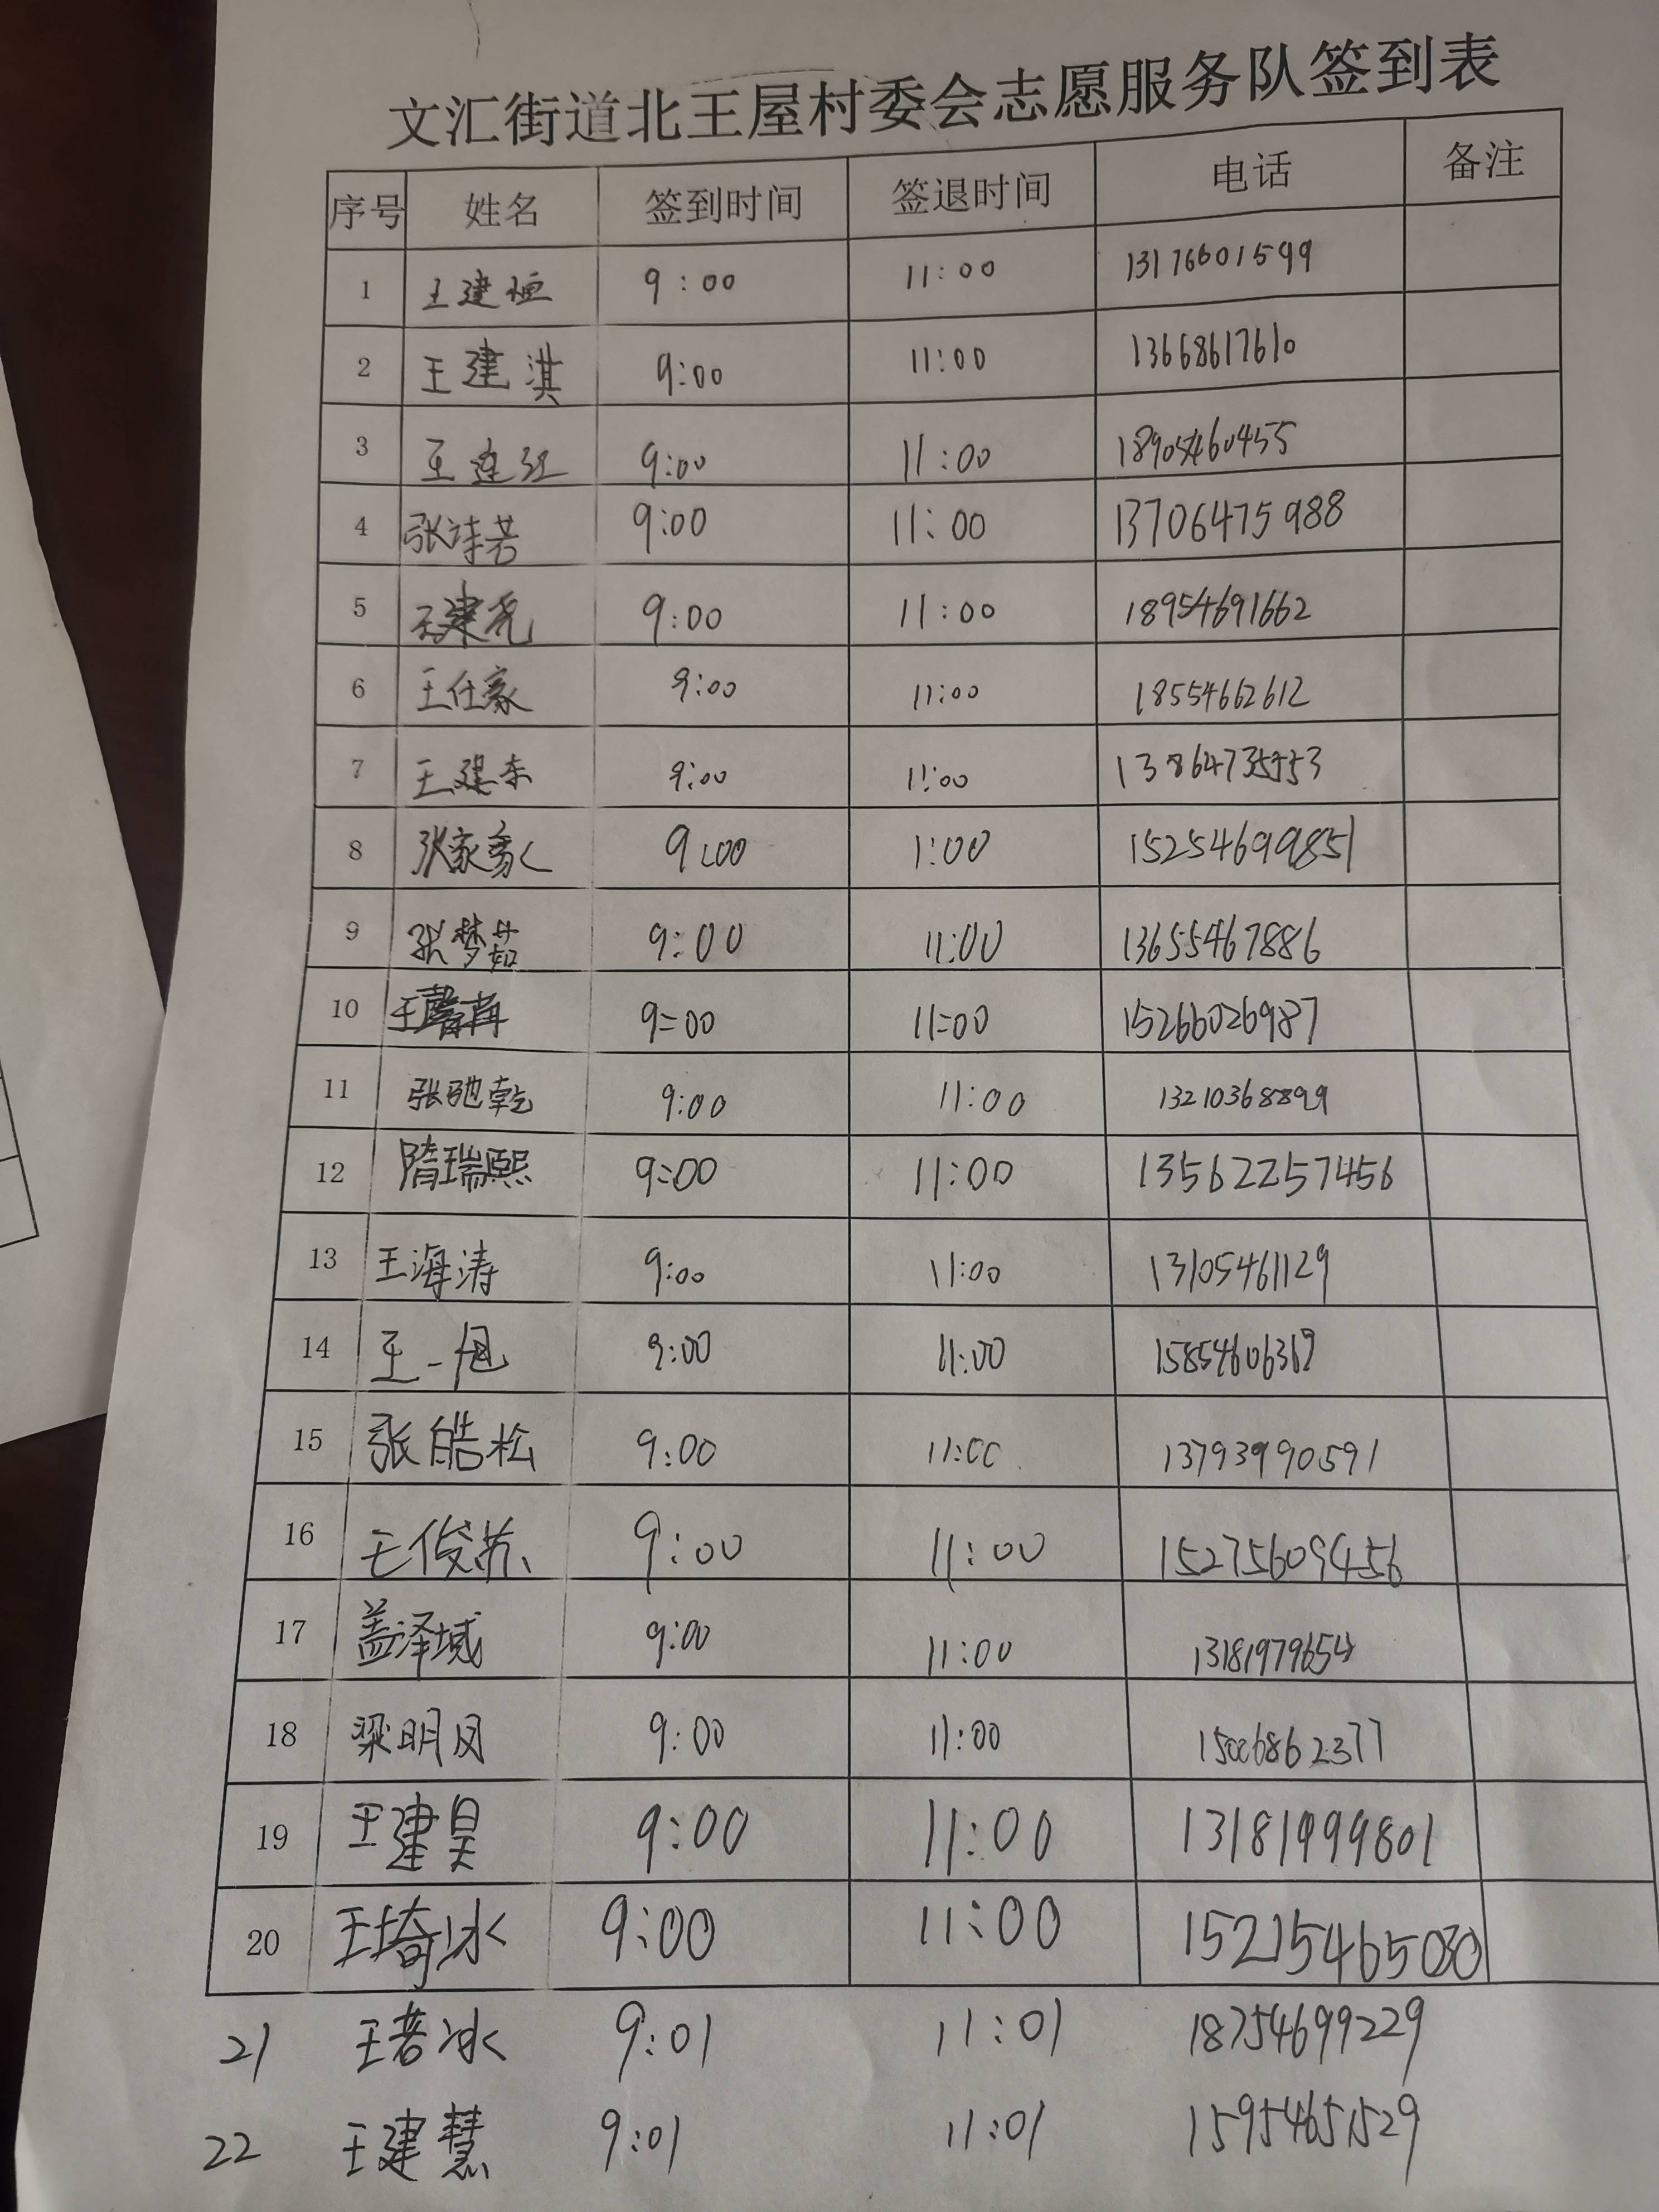 文汇街道北王屋村委会志愿服务队签到表
序号 姓名 签到时间 签退时间 电话 备注
1 王建恒 9:00 11:00 13176601599
2 王建淇 9:00 11:00 13668617610
3 王连江 9:00 11:00 18905460455
4 张诗若 9:00 11:00 13706475988
5 王建尧 9:00 11:00 18954691662
6 王仕豪 9:00 11:00 18554662612
7 王建东 9:00 11:00 13864735553
8 张家豪 9:00 1:00 15254699851
9 张梦茹 9:00 11:00 13655467886
10 王馨冉 9:00 11:00 15266026987
11 张驰乾 9:00 11:00 13210368899
12 隋瑞熙 9:00 11:00 13562257456
13 王海涛 9:00 11:00 13105461129
14 王一旭 9:00 11:00 15854606369
15 张皓松 9:00 11:00 13793990591
16 王俊苏 9:00 11:00 15275609456
17 盖泽域 9:00 11:00 13181979654
18 梁明凤 9:00 11:00 15006862377
19 王建昊 9:00 11:00 13181999801
20 王埼冰 9:00 11:00 15215465030
21 王若冰 9:01 11:01 18754699229
22 王建慧 9:01 11:01 15954651529